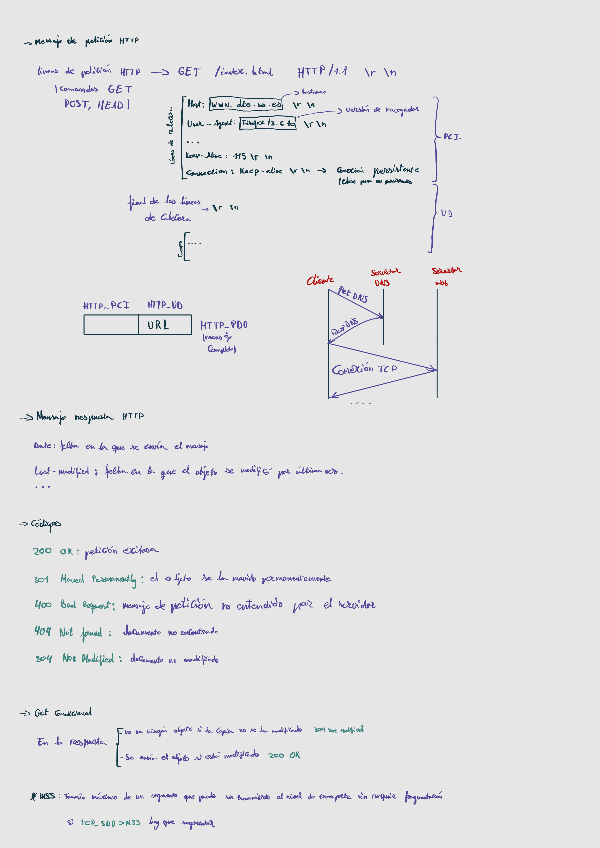 → Mensaje de petición HTTP
Líneas de petición HTTP → GET /index.html HTTP/1.1 \r \n
(comandos GET
POST, HEAD)
Líneas de cabecera
Host: \r \n
User-Agent: Firefox/3.6.10 \r \n
→ Versión de navegador
...
Keep-Alive: 115 \r \n
Connection: Keep-alive \r \n → Conexión persistente
PCI
final de las líneas
de cabecera → \r \n
UD
....
Cliente
Servidor
DNS
Servidor
Web
Pet DNS
Resp DNS
Conexión TCP
....
HTTP_PCI HTTP_UD
URL
HTTP_PDU
(mensaje
completo)
→ Mensaje respuesta HTTP
Date: fecha en la que se envía el mensaje
Last-modified: fecha en la que el objeto se modificó por última vez.
...
→ Códigos
200 OK: petición exitosa
301 Moved Permanently: el objeto se ha movido permanentemente
400 Bad Request: mensaje de petición no entendido por el servidor
404 Not found: documento no encontrado
304 Not Modified: documento no modificado
→ Get Condicional
En la respuesta
- No va ningún objeto si la copia no se ha modificado 304 not modified
- Se envía el objeto si está modificado 200 OK
* MSS: Tamaño máximo de un segmento que puede ser transmitido al nivel de transporte sin requerir fragmentación
Si TCP_SDU > MSS hay que segmentar